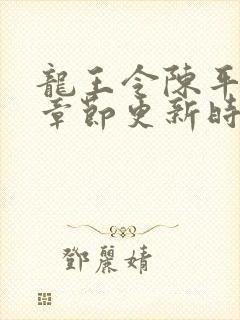 龍王令陳平
章節更新時
鄧麗婧